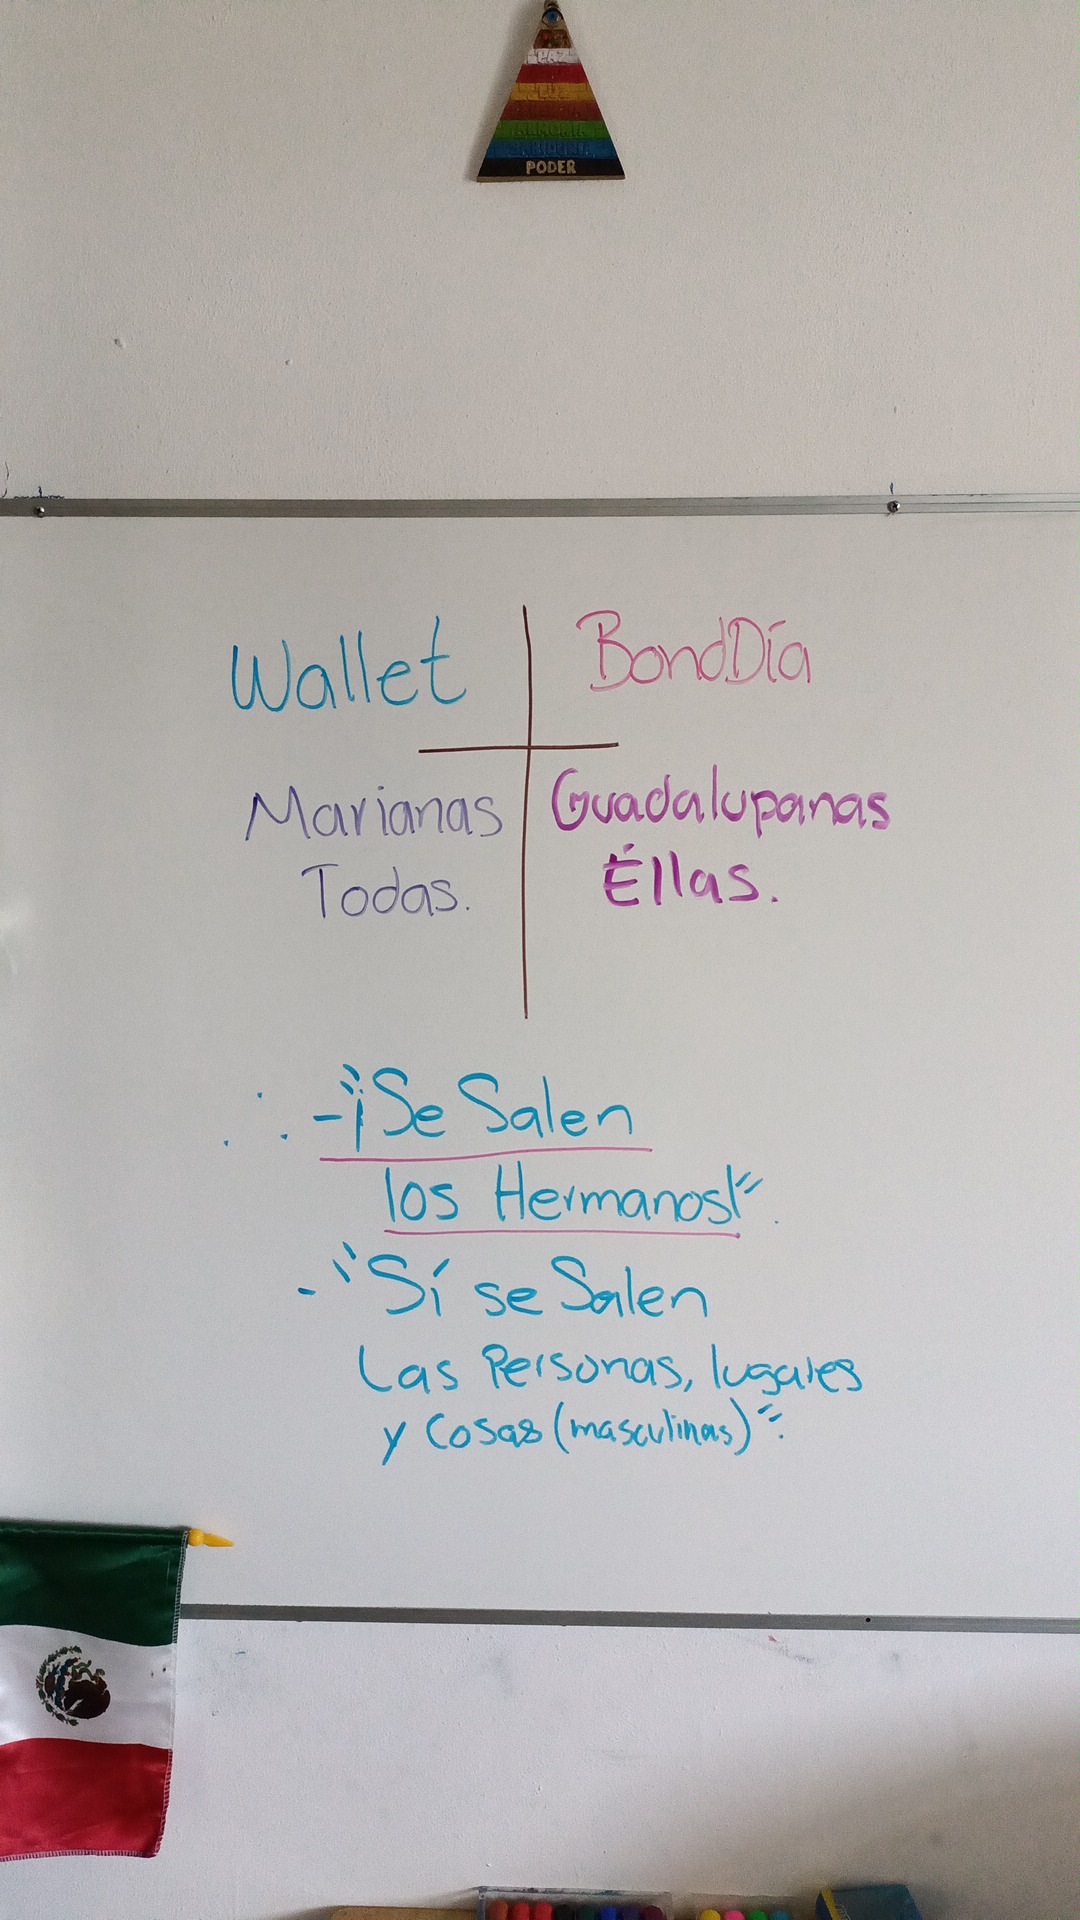 PAZ
LUZ
PODER
Wallet
BondDía
Marianas
Todas.
Guadalupanas
Éllas.
∴ -"¡Se Salen
los Hermanos!".
- "Sí se Salen
Las Personas, lugares
y Cosas (masculinas)".